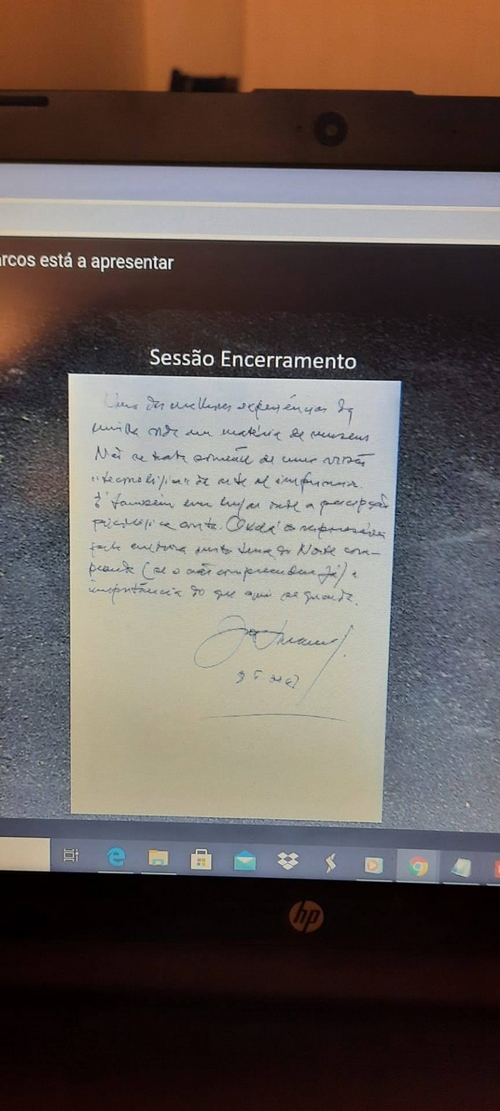 arcos está a apresentar
Sessão Encerramento
Uma das melhores experiências da
minha vida em matéria de museus
Não se trata somente de uma visão
de arte de
É também um lugar onde a percepção
conta. Oxalá os responsáveis
pela cultura nesta terra do Norte com-
preendam (se o não compreendem já) a
importância do que aqui se guarda.
hp